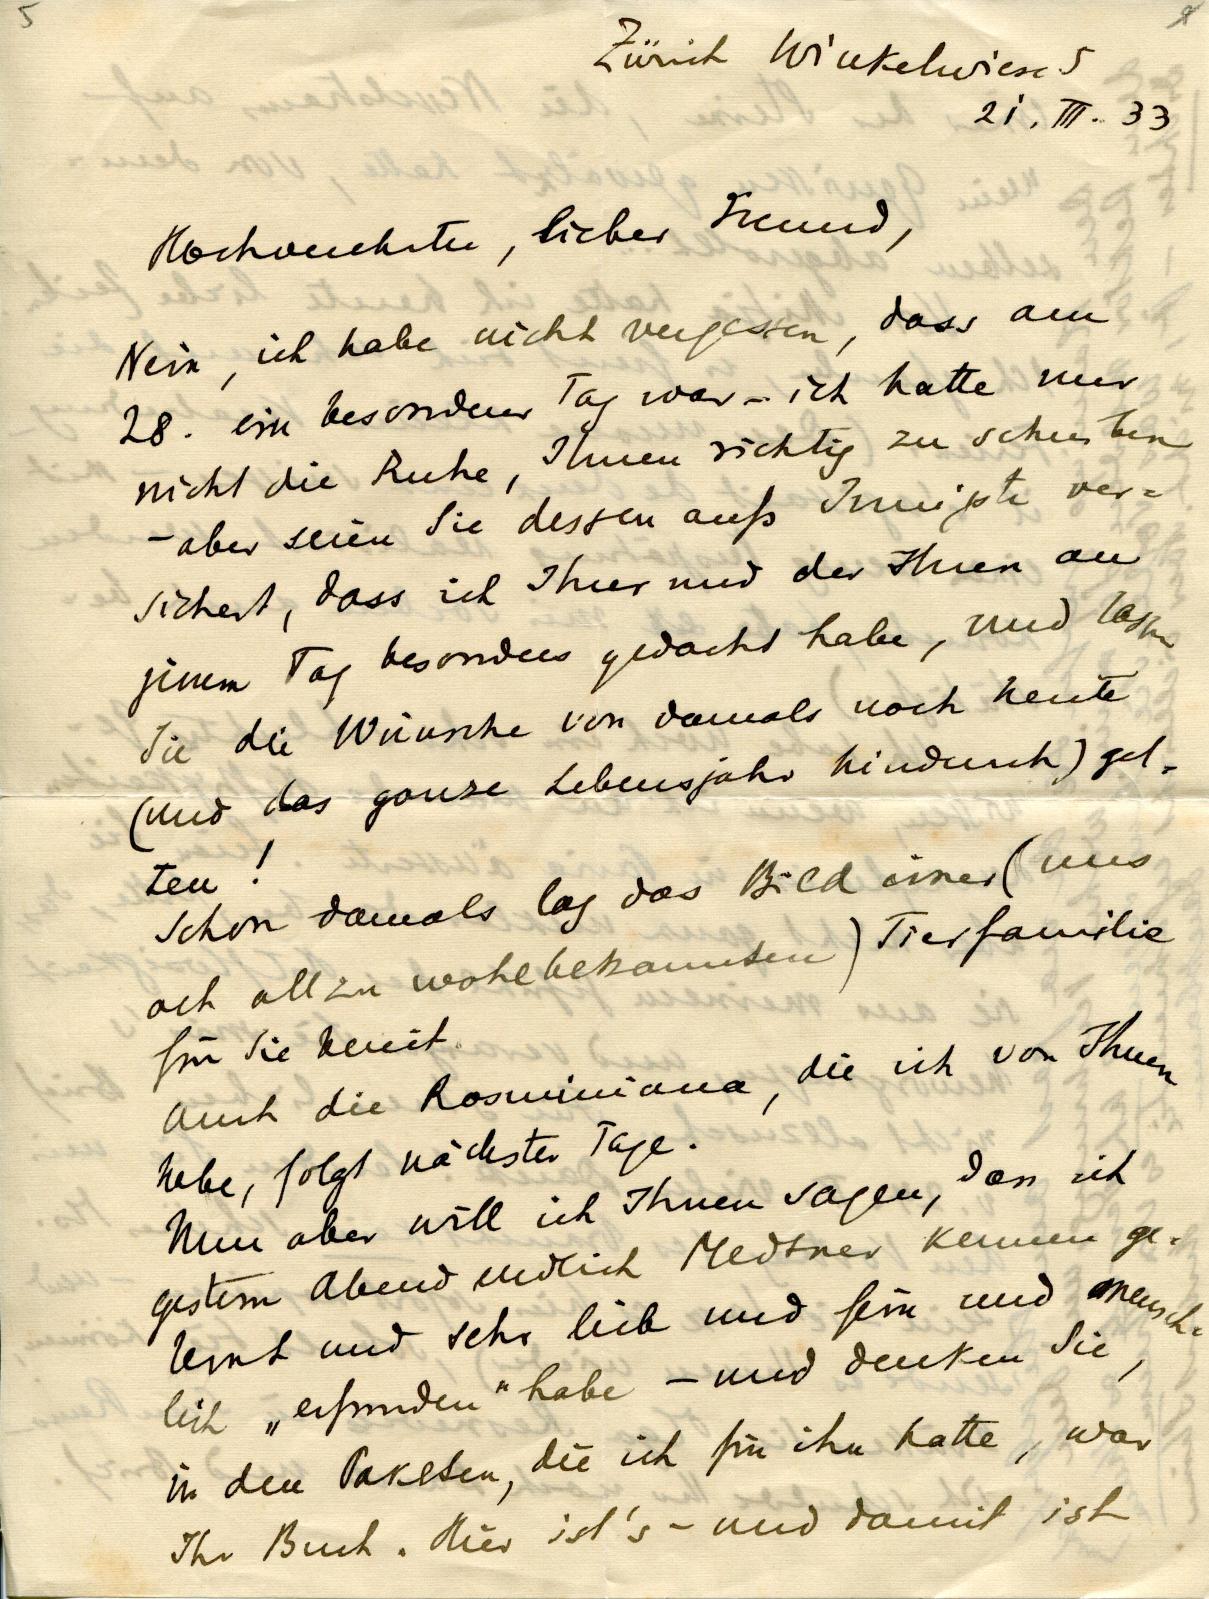 5
Zürich Winkelwiese 5
21. III. 33
Hochverehrter, lieber Freund,
Nein, ich habe nicht vergessen, dass am
28. ein besonderer Tag war – ich hatte nur
nicht die Ruhe, Ihnen richtig zu schreiben
– aber seien Sie dessen aufs Innigste ver=
sichert, dass ich Ihrer und der Ihren an
jenem Tag besonders gedacht habe, und lassen
Sie die Wünsche von damals noch heute
(und das ganze Lebensjahr hindurch) gel=
ten!
Schon damals lag das Bild einer (uns
ach allzu wohlbekannten) Tierfamilie
für Sie bereit.
Auch die Rosminiana, die ich von Ihnen
habe, folgt nächster Tage.
Nun aber will ich Ihnen sagen, dass ich
gestern Abend endlich Medtner kennen ge=
lernt und sehr lieb und fein und mensch=
lich „erfunden" habe – und denken Sie,
in den Paketen, die ich für ihn hatte, war
Ihr Buch. Hier ist's – und damit ist